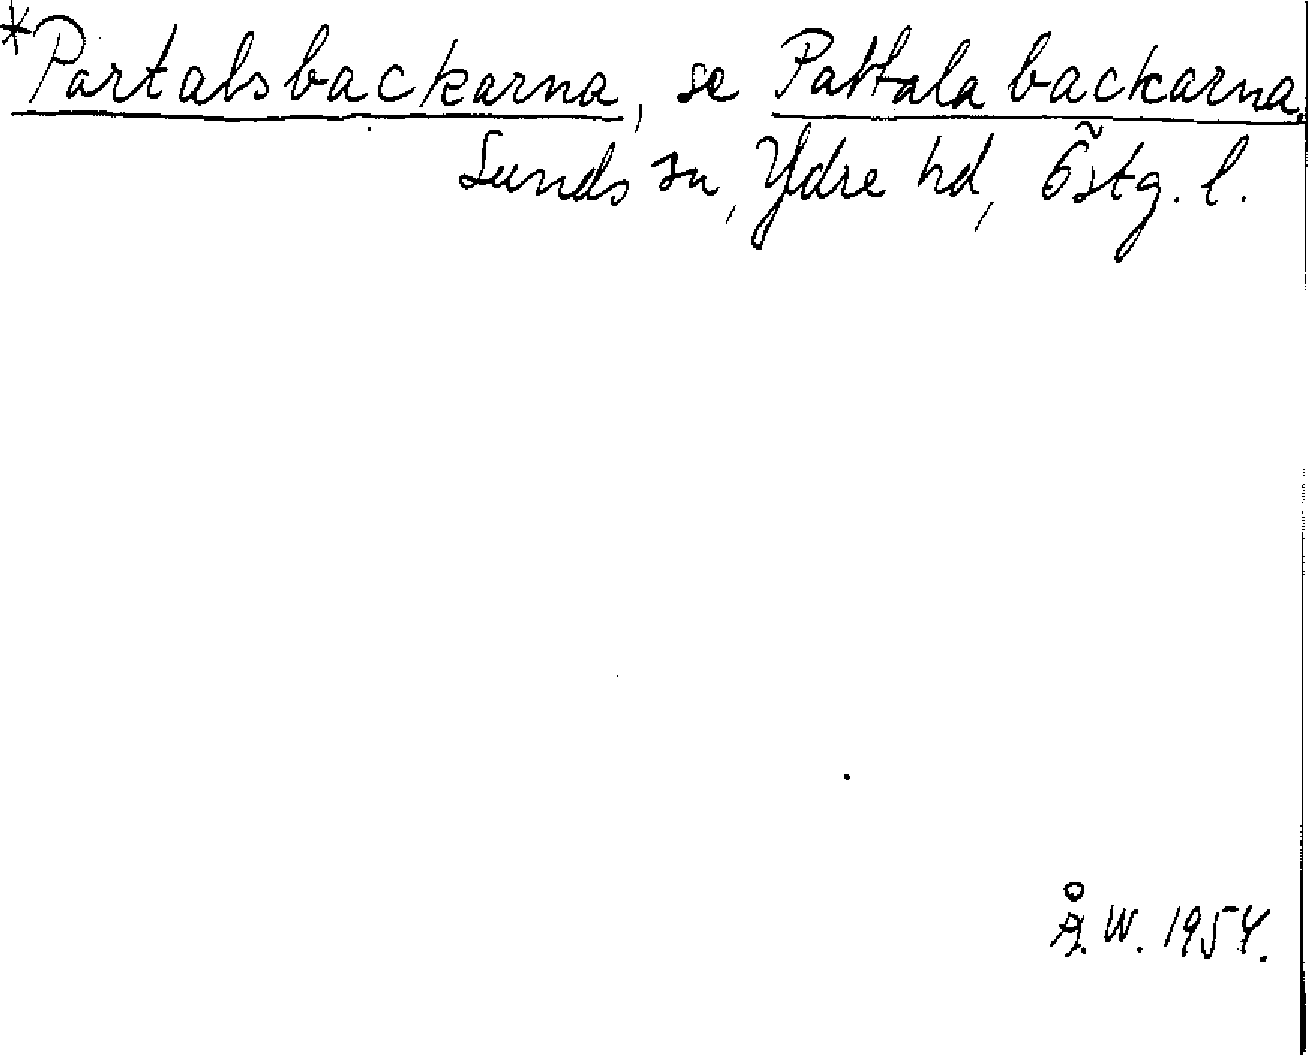 *Partalsbackarna, se Pattalabackarna,
Sunds sn, Ydre hd, Östg. l.
Å. W. 1954.